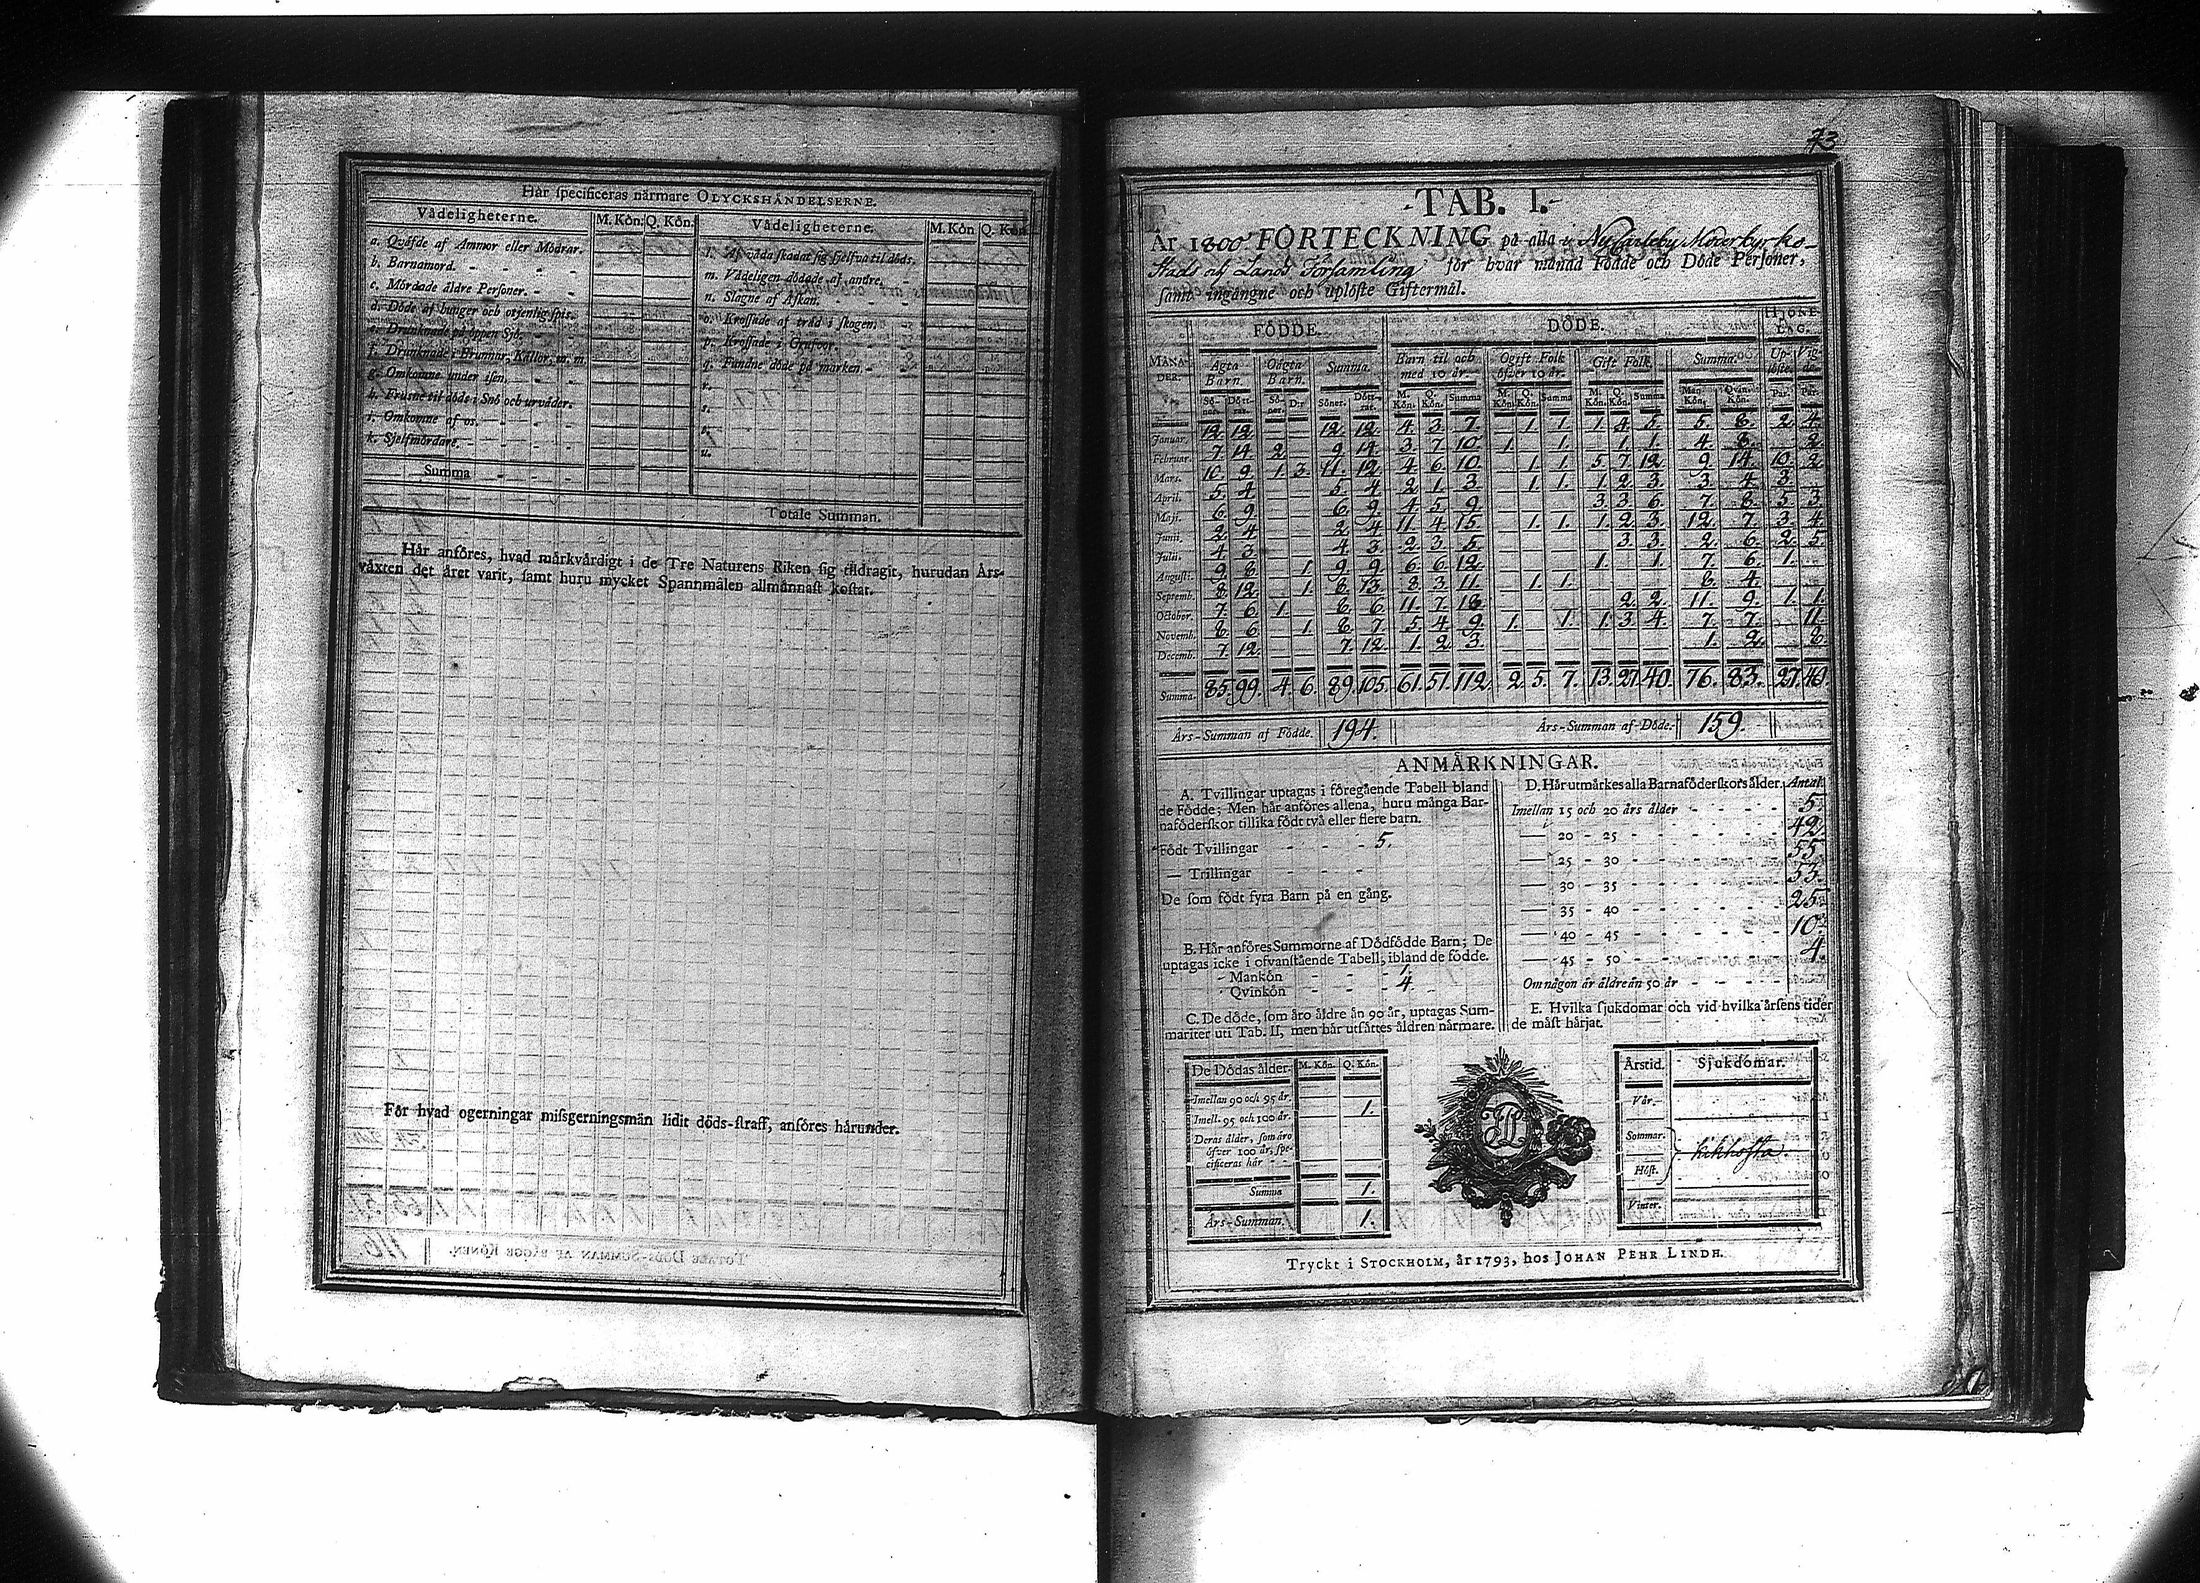 Här ſpecificeras närmare OLYCKSHÄNDELSERNE.
Vådeligheterne. M. Kön. Q. Kön. Vådeligheterne. M. Kön Q. Kön
a. Qväfde af Ammor eller Mödrar.
b. Barnamord.
c. Mördade äldre Perſoner.
d. Döde af hunger och otjenlig ſpis.
e. Drunknade på öppen Sjö.
f. Drunknade i Brunnar, Källor, m. m.
g. Omkomne under iſen.
h. Fruſne til döds i Snö och urväder.
i. Omkomne af os.
k. Sjelfmördare.
Summa
l. Af våda ſkadat ſig ſjelfva til döds.
m. Vådeligen dödade af andre.
n. Slagne af Åſkan.
o. Kroſſade af träd i ſkogen.
p. Kroſſade i Grufvor.
q. Fundne döde på marken.
r.
s.
t.
u.
Totale Summan.
Här anföres, hvad märkvärdigt i de Tre Naturens Riken ſig tildragit, hurudan Års-
växten det året varit, ſamt huru mycket Spannmålen allmännaſt koſtar.
För hvad ogerningar miſsgerningsmän lidit döds-ſtraff, anföres härunder.
TOTALE DÖDS-SUMMAN AF BÄGGE KÖNEN. 116.
73
TAB. I.
År 1800 FÖRTECKNING på alla i NyCarleby Moderkyrko-
Stads och Lands Församling för hvar månad Födde och Döde Perſoner,
ſamt ingångne och uplöſte Giftermål.
FÖDDE. DÖDE. HJONE-LAG.
MÅNADER. Ägta Barn. Oägta Barn. Summa. Barn til och med 10 år. Ogift Folk öfver 10 år. Gift Folk. Summa. Uplöſte. Vigde.
Söner. Döttrar. Söner. D:r Söner. Döttrar. M. Kön. Q. Kön. Summa M. Kön. Q. Kön. Summa M. Kön. Q. Kön. Summa Man-Kön. Qvin-Kön. Par. Par.
Januar. 12. 12. 12. 12. 4. 3. 7. 1. 1. 1. 4. 5. 5. 8. 2. 4.
Februar. 7. 14. 2. 9. 14. 3. 7. 10. 1. 1. 1. 1. 4. 8. 2.
Mars. 10. 9. 1. 3. 11. 12. 4. 6. 10. 1. 1. 5. 7. 12. 9. 14. 10. 2.
April. 5. 4. 5. 4. 2. 1. 3. 1. 1. 1. 2. 3. 3. 4. 3.
Maji. 6. 9. 6. 9. 4. 5. 9. 3. 3. 6. 7. 8. 5. 3.
Junii. 2. 4. 2. 4. 11. 4. 15. 1. 1. 1. 2. 3. 12. 7. 3. 4.
Julii. 4. 3. 4. 3. 2. 3. 5. 3. 3. 2. 6. 2. 5.
Auguſti. 9. 8. 1. 9. 9. 6. 6. 12. 1. 1. 7. 6. 1.
Septemb. 8. 12. 1. 8. 13. 8. 3. 11. 1. 1. 8. 4.
October. 7. 6. 1. 8. 6. 11. 7. 18. 2. 2. 11. 9. 1. 1.
Novemb. 8. 6. 1. 8. 7. 5. 4. 9. 1. 1. 1. 3. 4. 7. 7. 11.
Decemb. 7. 12. 7. 12. 1. 2. 3. 1. 2. 8.
Summa 85. 99. 4. 6. 89. 105. 61. 51. 112. 2. 5. 7. 13. 27. 40. 76. 83. 27. 40.
Års-Summan af Födde. 194. Års-Summan af Döde. 159.
ANMÄRKNINGAR.
A. Tvillingar uptagas i föregående Tabell bland
de Födde; Men här anföres allena, huru många Bar-
naföderſkor tillika födt två eller flere barn.
Födt Tvillingar 5.
— Trillingar
De ſom födt fyra Barn på en gång.
B. Här anföres Summorne af Dödfödde Barn; De
uptagas icke i ofvanſtående Tabell, ibland de födde.
- Mankön 1.
- Qvinkön 4.
C. De döde, ſom äro äldre än 90 år, uptagas Sum-
mariter uti Tab. II, men här utſättes åldren närmare.
De Dödas ålder. M. Kön. Q. Kön.
Imellan 90 och 95 år.
Imell. 95 och 100 år. 1.
Deras ålder, ſom äro
öfver 100 år, ſpe-
cificeras här
Summa 1.
Års-Summan. 1.
D. Här utmärkes alla Barnaföderſkors ålder. Antal.
Imellan 15 och 20 års ålder 5.
20 - 25 42.
25 - 30 55.
30 - 35 53.
35 - 40 25.
40 - 45 10.
45 - 50 4.
Om någon är äldre än 50 år
E. Hvilka ſjukdomar och vid hvilka årſens tider
de mäſt härjat.
Årstid. Sjukdomar.
Vår.
Sommar.
Höſt. kikhosta.
Vinter.
Tryckt i STOCKHOLM, år 1793, hos JOHAN PEHR LINDH.